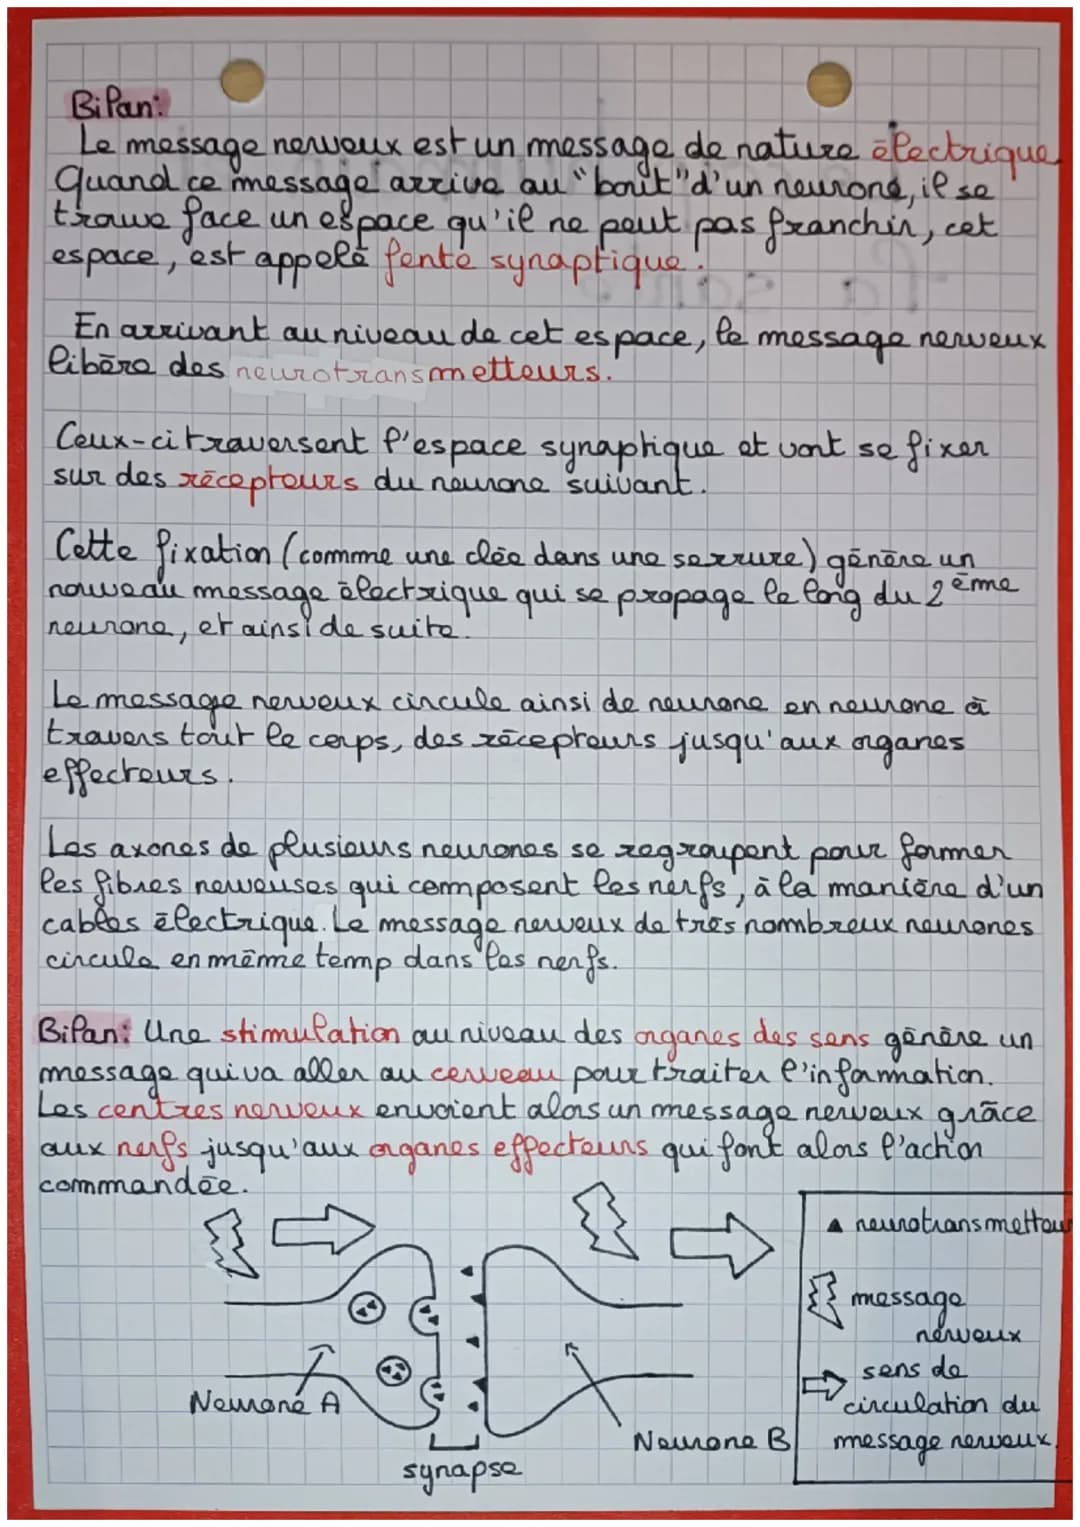 Bilan:
Le message nerveux est un message de nature électrique.
Quand ce message arrive au "bout" d'un neurone, il se
trouve face un espace qu'il ne peut pas franchir, cet
espace, est appelé fente synaptique.
En arrivant au niveau de cet espace, le message nerveux
libère des neurotransmetteurs.
Ceux-ci traversent l'espace synaptique et vont se fixer
sur des récepteurs du neurone suivant.
Cette fixation (comme une clée dans une serrure) génère un
nouveau message électrique qui se propage le long du 2ème
neurone, et ainsi de suite.
Le message nerveux circule ainsi de neurone en neurone à
travers tout le corps, des récepteurs jusqu'aux organes
effecteurs.
Les axones de plusieurs neurones se regroupent pour former
les fibres nerveuses qui composent les nerfs, à la manière d'un
cables électrique. Le message nerveux de très nombreux neurones
circule en même temp dans les nerfs.
Bilan: Une stimulation au niveau des organes des sens génère un
message qui va aller au cerveau pour traiter l'information.
Les centres nerveux envoient alors un message nerveux grâce
aux nerfs jusqu'aux organes effecteurs qui font alors l'action
commandée.
▲ neurotransmetteur
message
nerveux
sens de
circulation du
message nerveux.
Neurone A
Neurone B
synapse